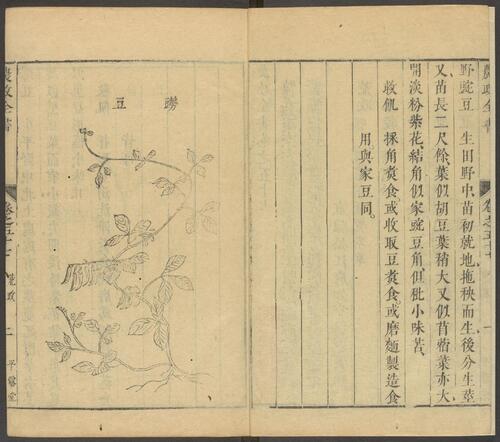 農政全書
卷之五十七
一
野豌豆 生田野中苗初就地拖秧而生後分生莖
叉苗長二尺餘葉似胡豆葉稍大又似苜蓿葉亦大
開淡粉紫花結角似家豌豆角但秕小味苦
救飢 採角煑食或收取豆煑食或磨麵製造食
用與家豆同
豆
農政全書
卷之五十七
荒政
二
平露堂